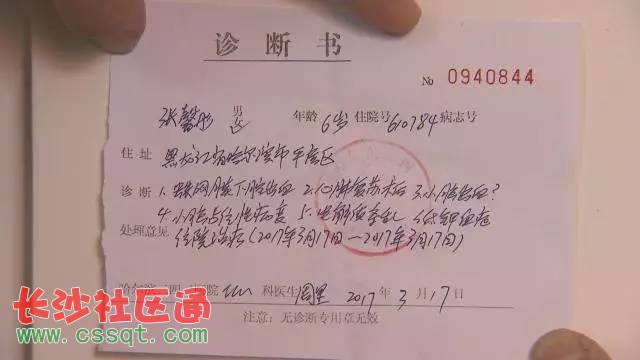 诊断书
No 0940844
张馨彤 男 女 年龄 6岁 住院号 610784 病志号
住址 黑龙江省哈尔滨市平房区
诊断 1.蛛网膜下腔出血 2.心肺复苏术后 3.小脑出血?
4.小脑占位性病变 5.电解质紊乱 低钾血症
处理意见 住院治疗(2017年3月17日—2017年3月17日)
医院 ICU 科医生 2017年3月17日
注意:无诊断专用章无效
长沙社区通
www.cssqt.com